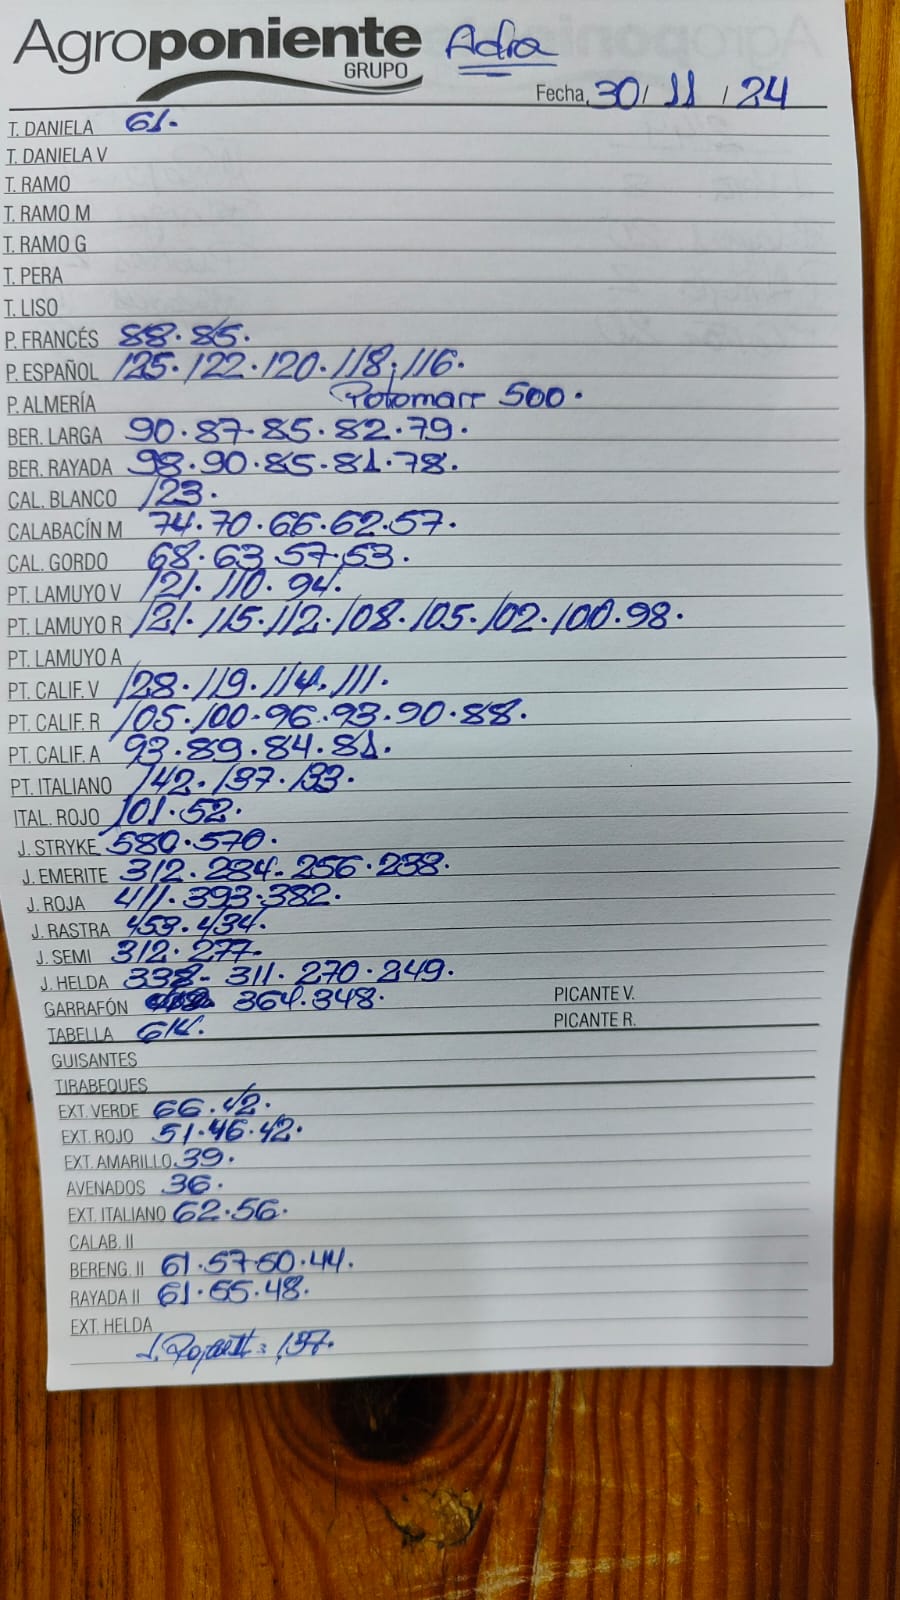 Agroponiente Adra
GRUPO
Fecha, 30 / 11 / 24
T. DANIELA 61.
T. DANIELA V
T. RAMO
T. RAMO M
T. RAMO G
T. PERA
T. LISO
P. FRANCÉS 88. 85.
P. ESPAÑOL 125. 122. 120. 118. 116.
P. ALMERÍA Potomarr 500.
BER. LARGA 90. 87. 85. 82. 79.
BER. RAYADA 98. 90. 85. 81. 78.
CAL. BLANCO 123.
CALABACÍN M 74. 70. 66. 62. 57.
CAL. GORDO 68. 63. 57. 53.
PT. LAMUYO V 121. 110. 94.
PT. LAMUYO R 121. 115. 112. 108. 105. 102. 100. 98.
PT. LAMUYO A
PT. CALIF. V 128. 119. 114. 111.
PT. CALIF. R 105. 100. 96. 93. 90. 88.
PT. CALIF. A 93. 89. 84. 81.
PT. ITALIANO 142. 137. 133.
ITAL. ROJO 101. 52.
J. STRYKE 580. 570.
J. EMERITE 312. 284. 256. 238.
J. ROJA 411. 393. 382.
J. RASTRA 453. 434.
J. SEMI 312. 277.
J. HELDA 338. 311. 270. 249.
GARRAFÓN 364. 348. PICANTE V.
TABELLA 614. PICANTE R.
GUISANTES
TIRABEQUES
EXT. VERDE 66. 42.
EXT. ROJO 51. 46. 42.
EXT. AMARILLO 39.
AVENADOS 36.
EXT. ITALIANO 62. 56.
CALAB. II
BERENG. II 61. 57. 50. 44.
RAYADA II 61. 55. 48.
EXT. HELDA
J. Roja II = 137.